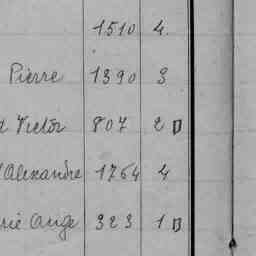 1510 4.
Pierre 1390 3
Victor 807 2
Alexandre 1764 4
Ange 323 1